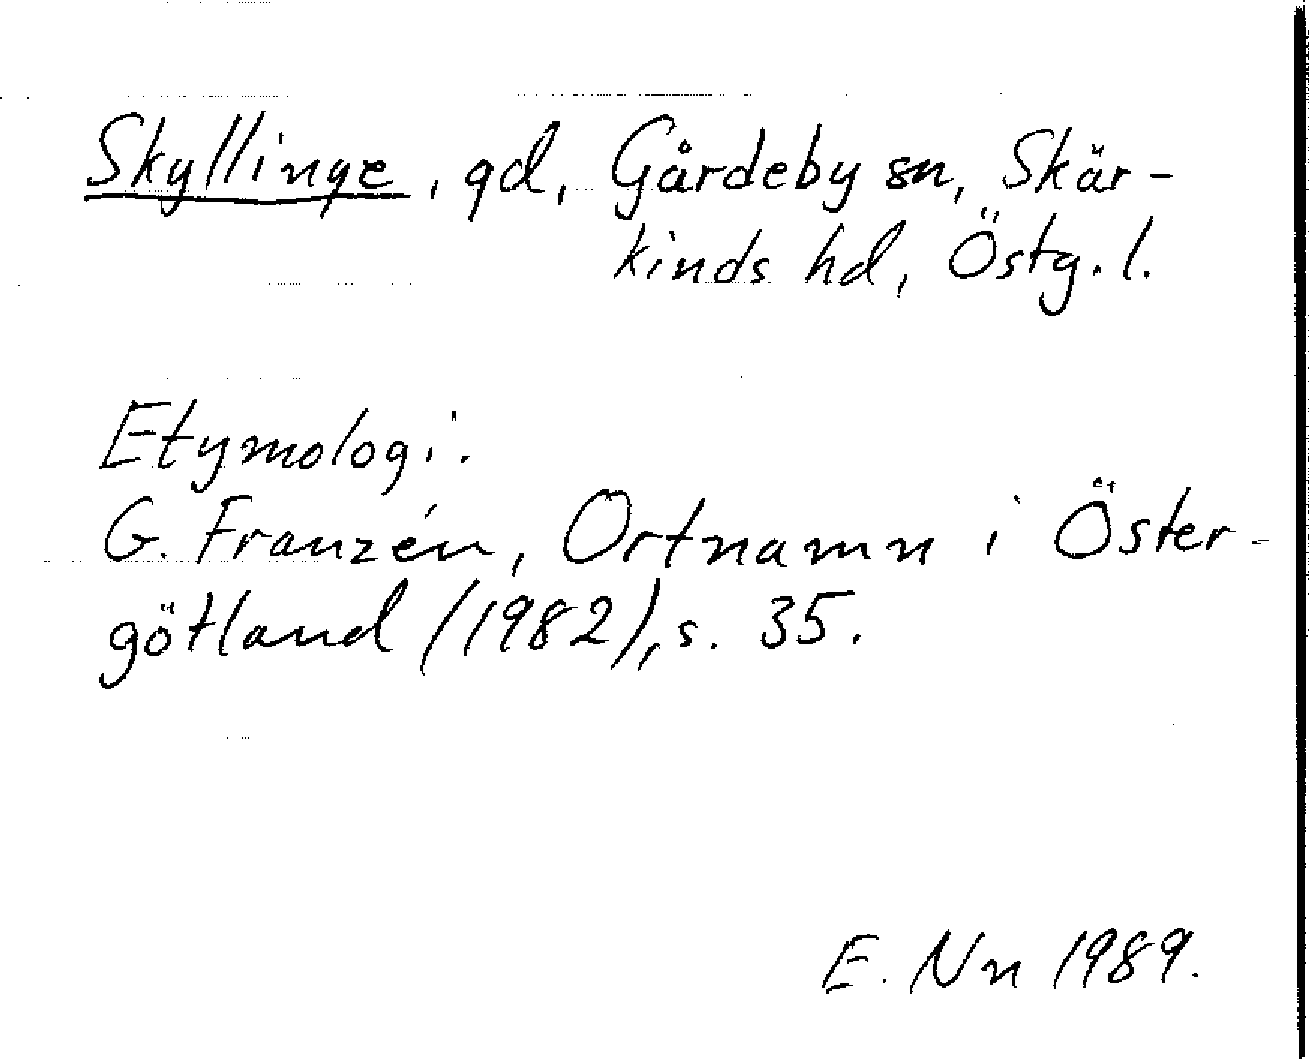 Skyllinge, gd, Gårdeby sn, Skär-
kinds hd, Östg. l.
Etymologi.
G. Franzén, Ortnamn i Öster-
götland (1982), s. 35.
E. Nn 1989.